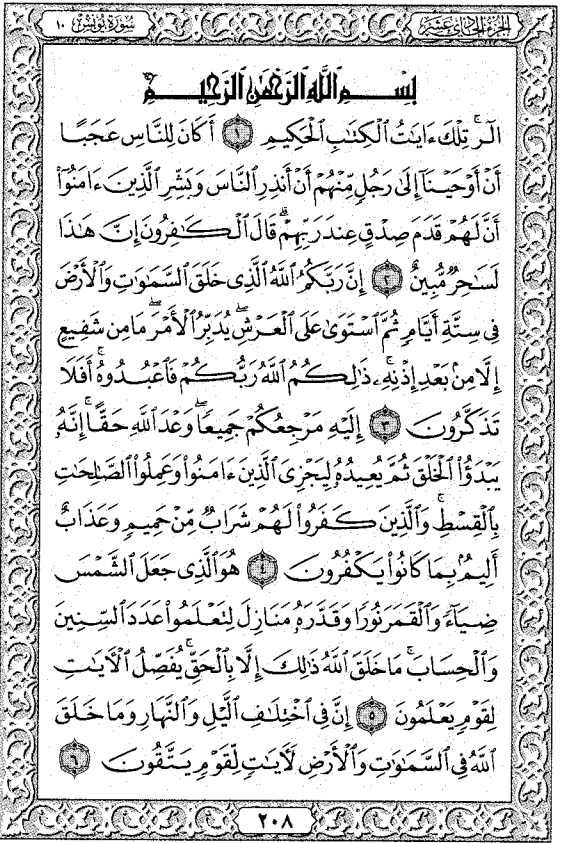 سورة يونس ١٠
الجزء الحادي عشر
بِسْمِ اللَّهِ الرَّحْمَٰنِ الرَّحِيمِ
الٓر ۚ تِلْكَ ءَايَاتُ الْكِتَابِ الْحَكِيمِ ١ أَكَانَ لِلنَّاسِ عَجَبًا
أَنْ أَوْحَيْنَآ إِلَىٰ رَجُلٍ مِّنْهُمْ أَنْ أَنذِرِ النَّاسَ وَبَشِّرِ الَّذِينَ ءَامَنُوٓا۟
أَنَّ لَهُمْ قَدَمَ صِدْقٍ عِندَ رَبِّهِمْ ۗ قَالَ الْكَٰفِرُونَ إِنَّ هَٰذَا
لَسَٰحِرٌ مُّبِينٌ ٢ إِنَّ رَبَّكُمُ اللَّهُ الَّذِى خَلَقَ السَّمَٰوَٰتِ وَالْأَرْضَ
فِى سِتَّةِ أَيَّامٍ ثُمَّ اسْتَوَىٰ عَلَى الْعَرْشِ ۖ يُدَبِّرُ الْأَمْرَ ۖ مَا مِن شَفِيعٍ
إِلَّا مِنۢ بَعْدِ إِذْنِهِۦ ۚ ذَٰلِكُمُ اللَّهُ رَبُّكُمْ فَاعْبُدُوهُ ۚ أَفَلَا
تَذَكَّرُونَ ٣ إِلَيْهِ مَرْجِعُكُمْ جَمِيعًا ۖ وَعْدَ اللَّهِ حَقًّا ۚ إِنَّهُۥ
يَبْدَؤُا۟ الْخَلْقَ ثُمَّ يُعِيدُهُۥ لِيَجْزِىَ الَّذِينَ ءَامَنُوا۟ وَعَمِلُوا۟ الصَّٰلِحَٰتِ
بِالْقِسْطِ ۚ وَالَّذِينَ كَفَرُوا۟ لَهُمْ شَرَابٌ مِّنْ حَمِيمٍ وَعَذَابٌ
أَلِيمٌۢ بِمَا كَانُوا۟ يَكْفُرُونَ ٤ هُوَ الَّذِى جَعَلَ الشَّمْسَ
ضِيَآءً وَالْقَمَرَ نُورًا وَقَدَّرَهُۥ مَنَازِلَ لِتَعْلَمُوا۟ عَدَدَ السِّنِينَ
وَالْحِسَابَ ۚ مَا خَلَقَ اللَّهُ ذَٰلِكَ إِلَّا بِالْحَقِّ ۚ يُفَصِّلُ الْآيَٰتِ
لِقَوْمٍ يَعْلَمُونَ ٥ إِنَّ فِى اخْتِلَٰفِ الَّيْلِ وَالنَّهَارِ وَمَا خَلَقَ
اللَّهُ فِى السَّمَٰوَٰتِ وَالْأَرْضِ لَآيَٰتٍ لِّقَوْمٍ يَتَّقُونَ ٦
٢٠٨